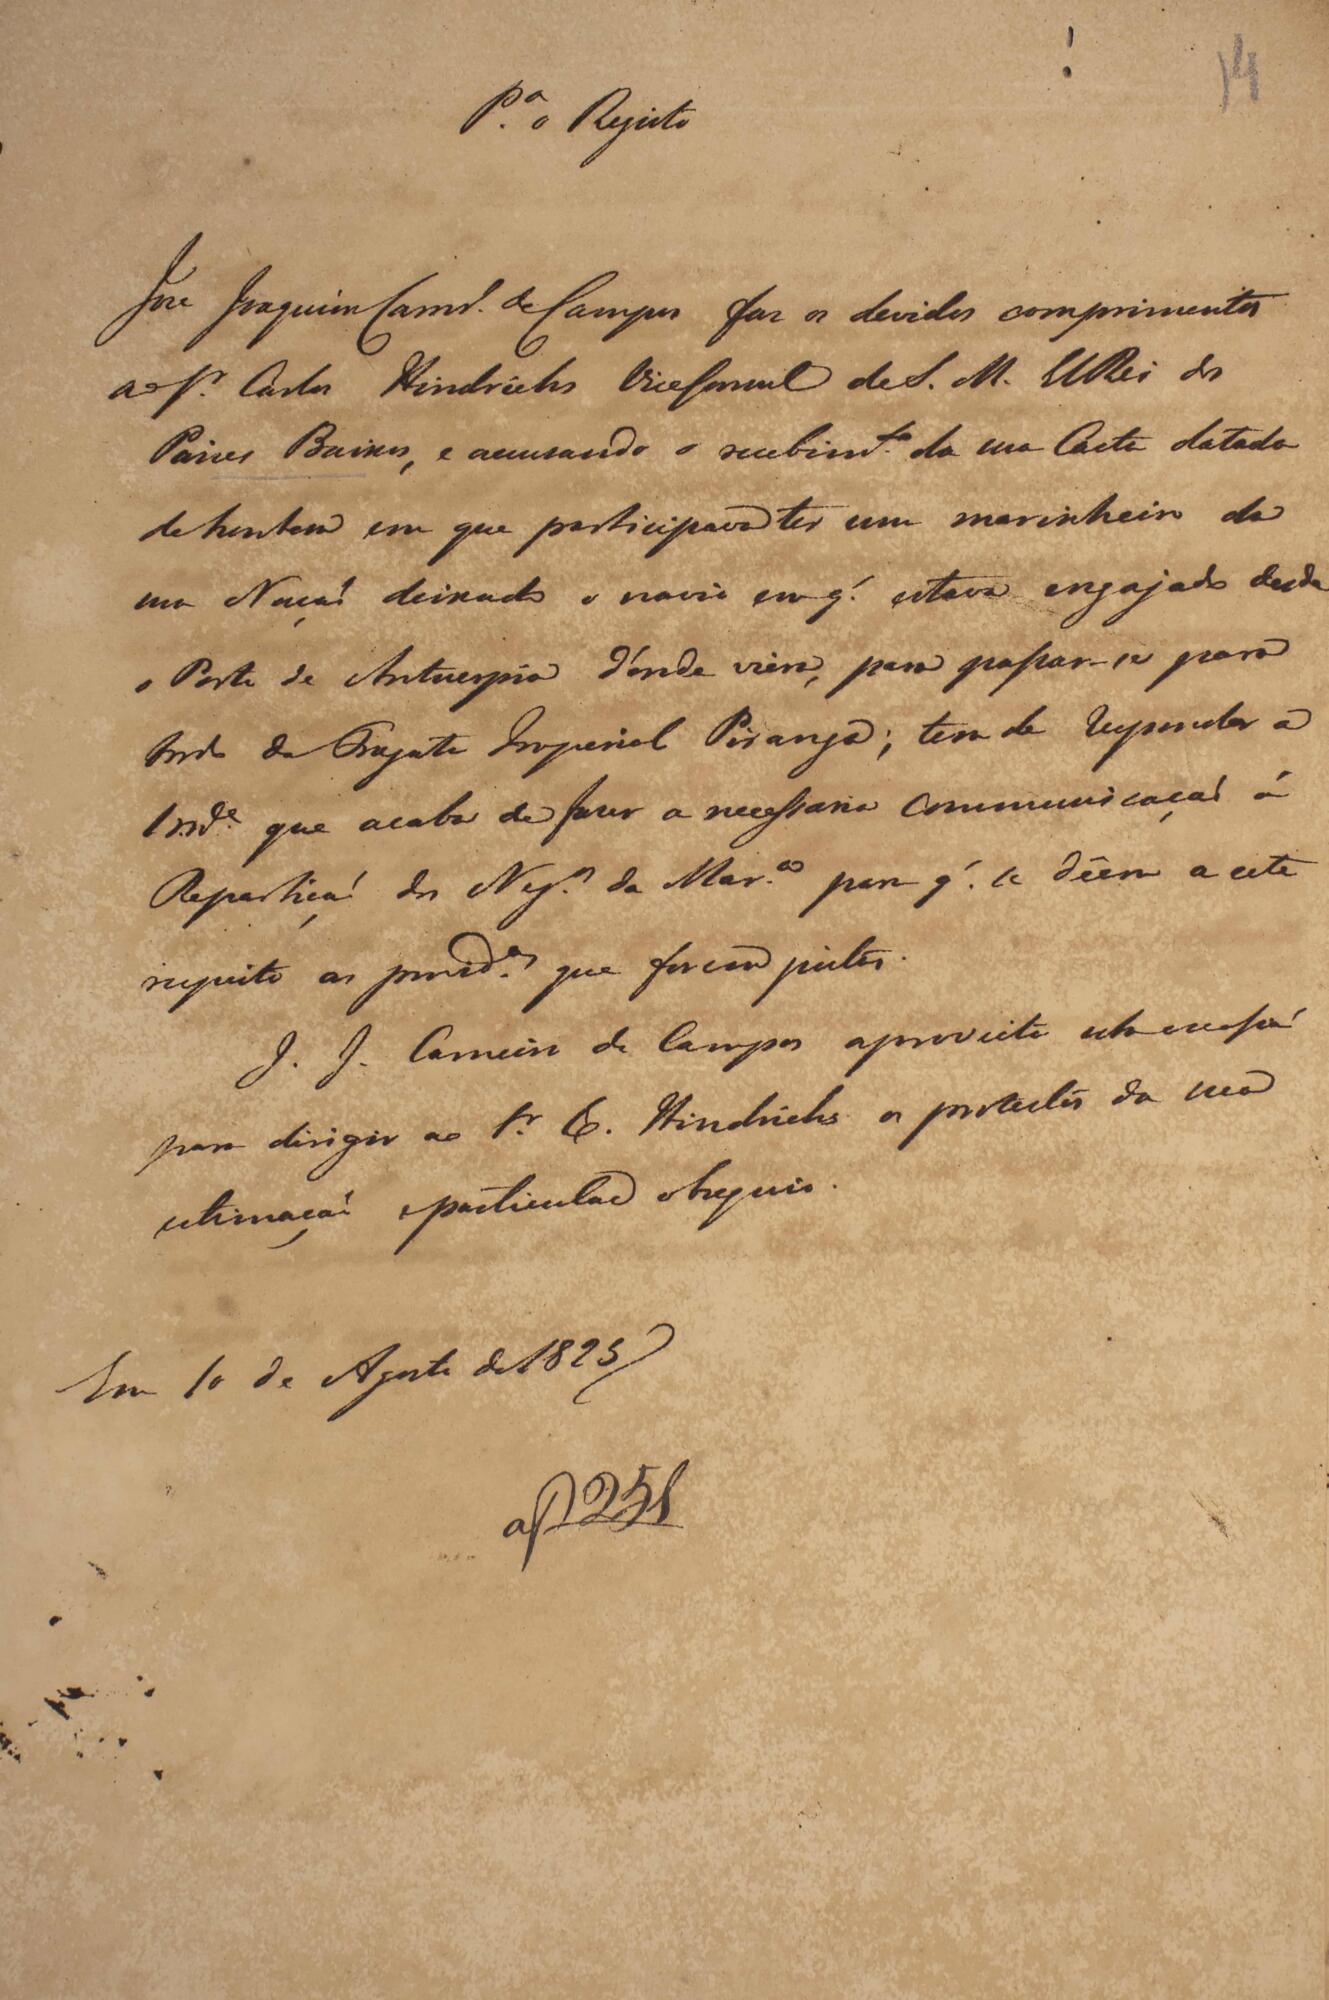 14
P.ª o Registo
Joze Joaquim Carn.º de Campos faz os devidos comprimentos
ao S.r Carlos Hindrichs Vice Consul de S. M. ElRei dos
Paizes Baixos, e accusando o recebim.to da sua Carta datada
de hontem em que participava ter um marinheiro da
sua Nação deixado o navio em q.' estava engajado desde
o Porto de Antuerpia d'onde viera, para passar-se para
bordo da Fragata Imperial Piranga; tem de responder a
que acaba de fazer a necessaria communicação á
Repartição dos Neg.os da Mar.ª para q.' se dêem a este
respeito as provid.as que forem justas.
J. J. Carneiro de Campos aproveita esta occasião
para dirigir ao S.r C. Hindrichs os protestos da sua
estimação e particular obsequio.
Em 10 de Agosto de 1823